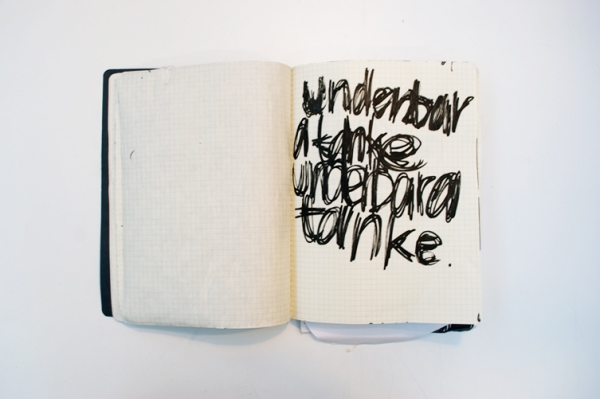 underbar
a tanke
underbara
tanke.